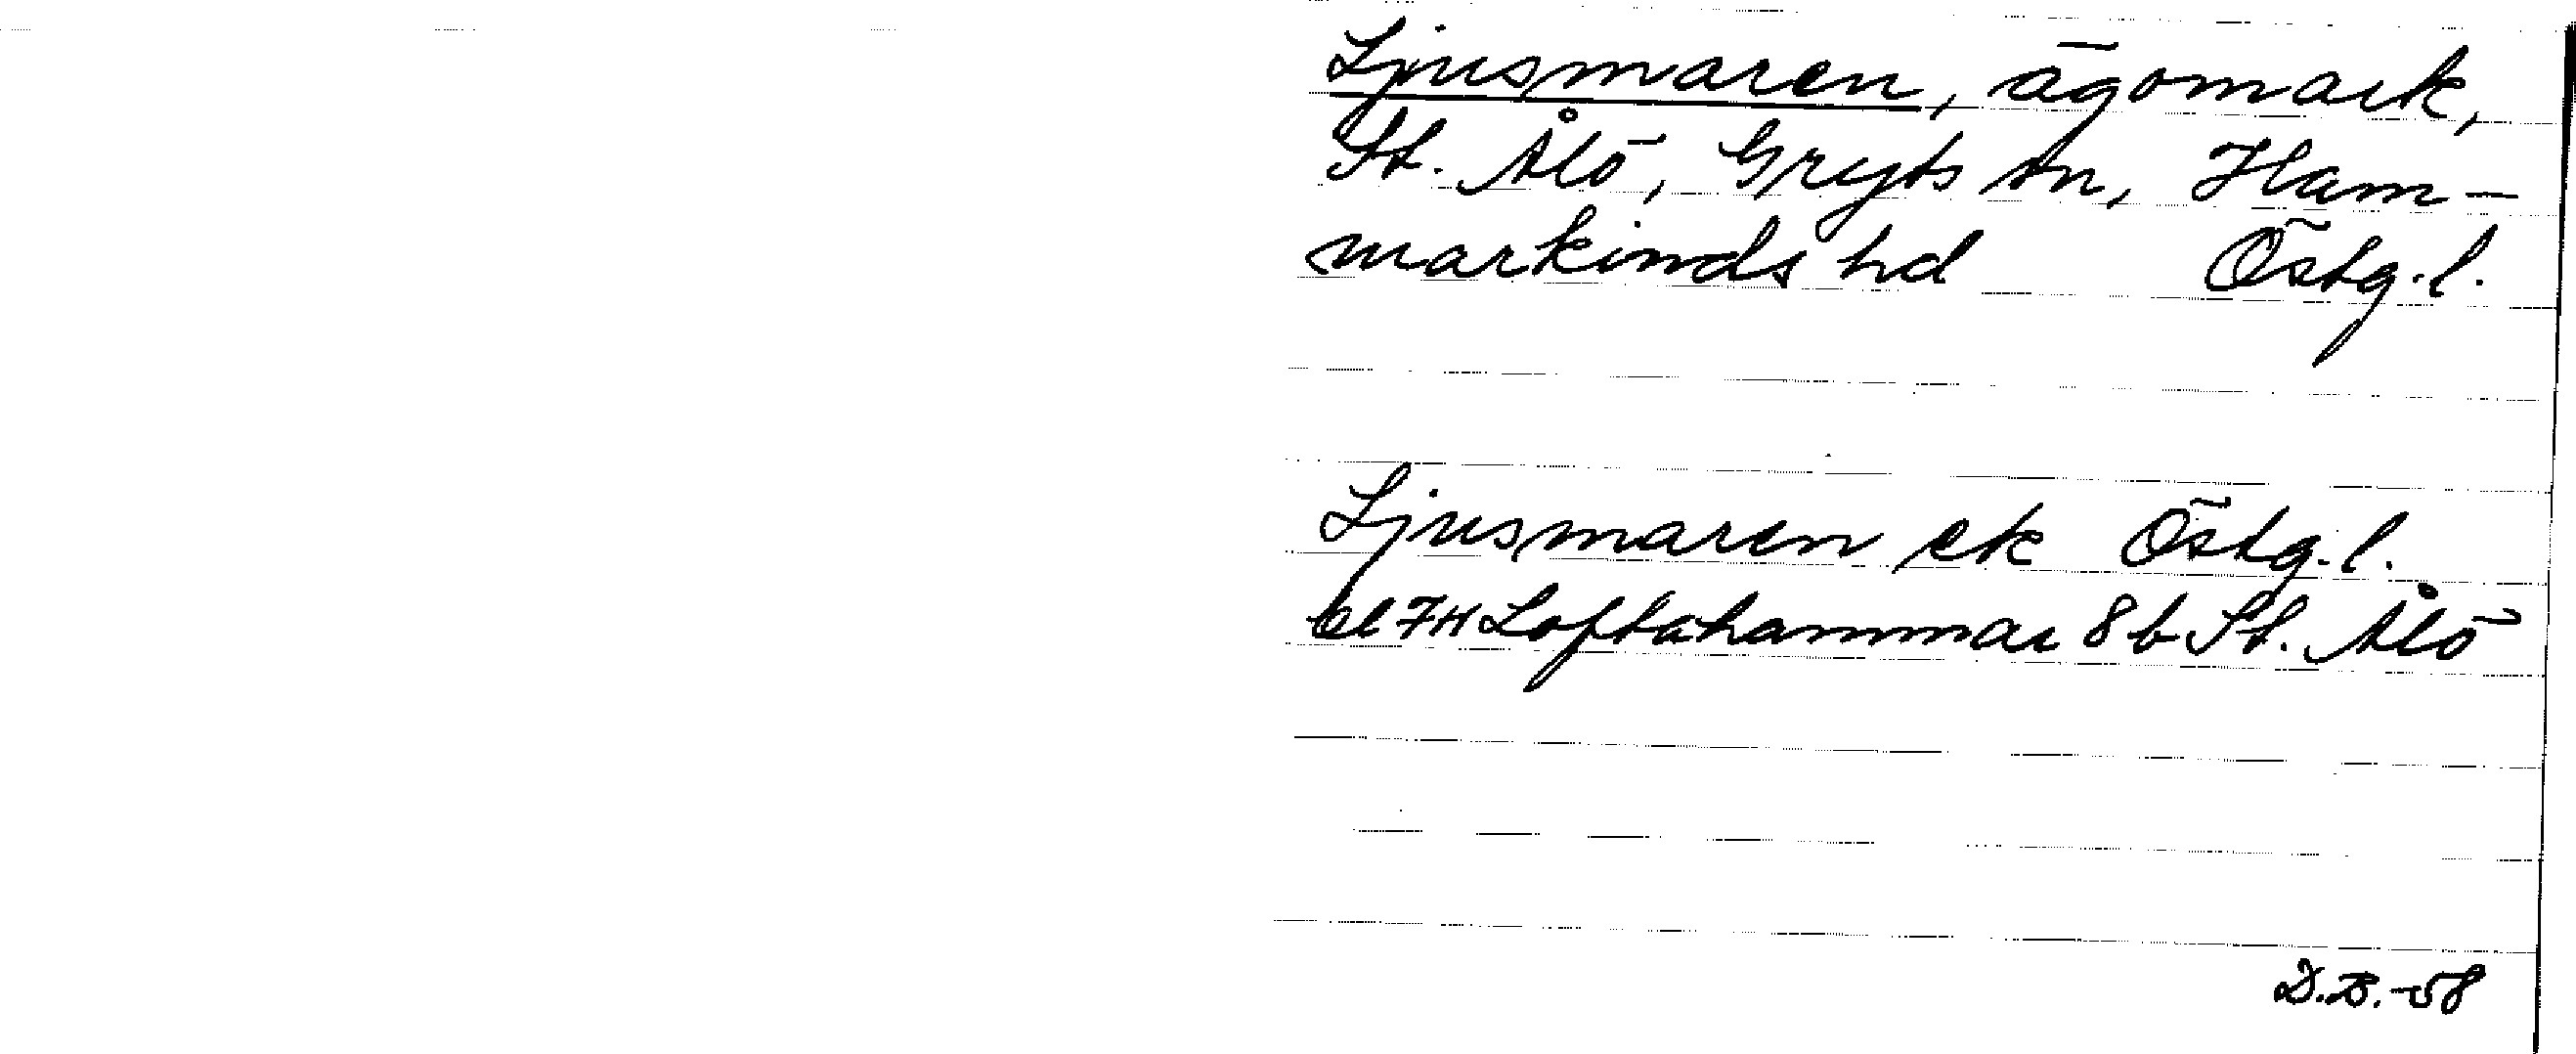 Ljusmaren, ägomark,
St. Ålö, Gryts sn, Ham-
markinds hd Östg.l.
Ljusmaren ek Östg.l.
bl 7H Loftahammar 8b St. Ålö
D.B.-58